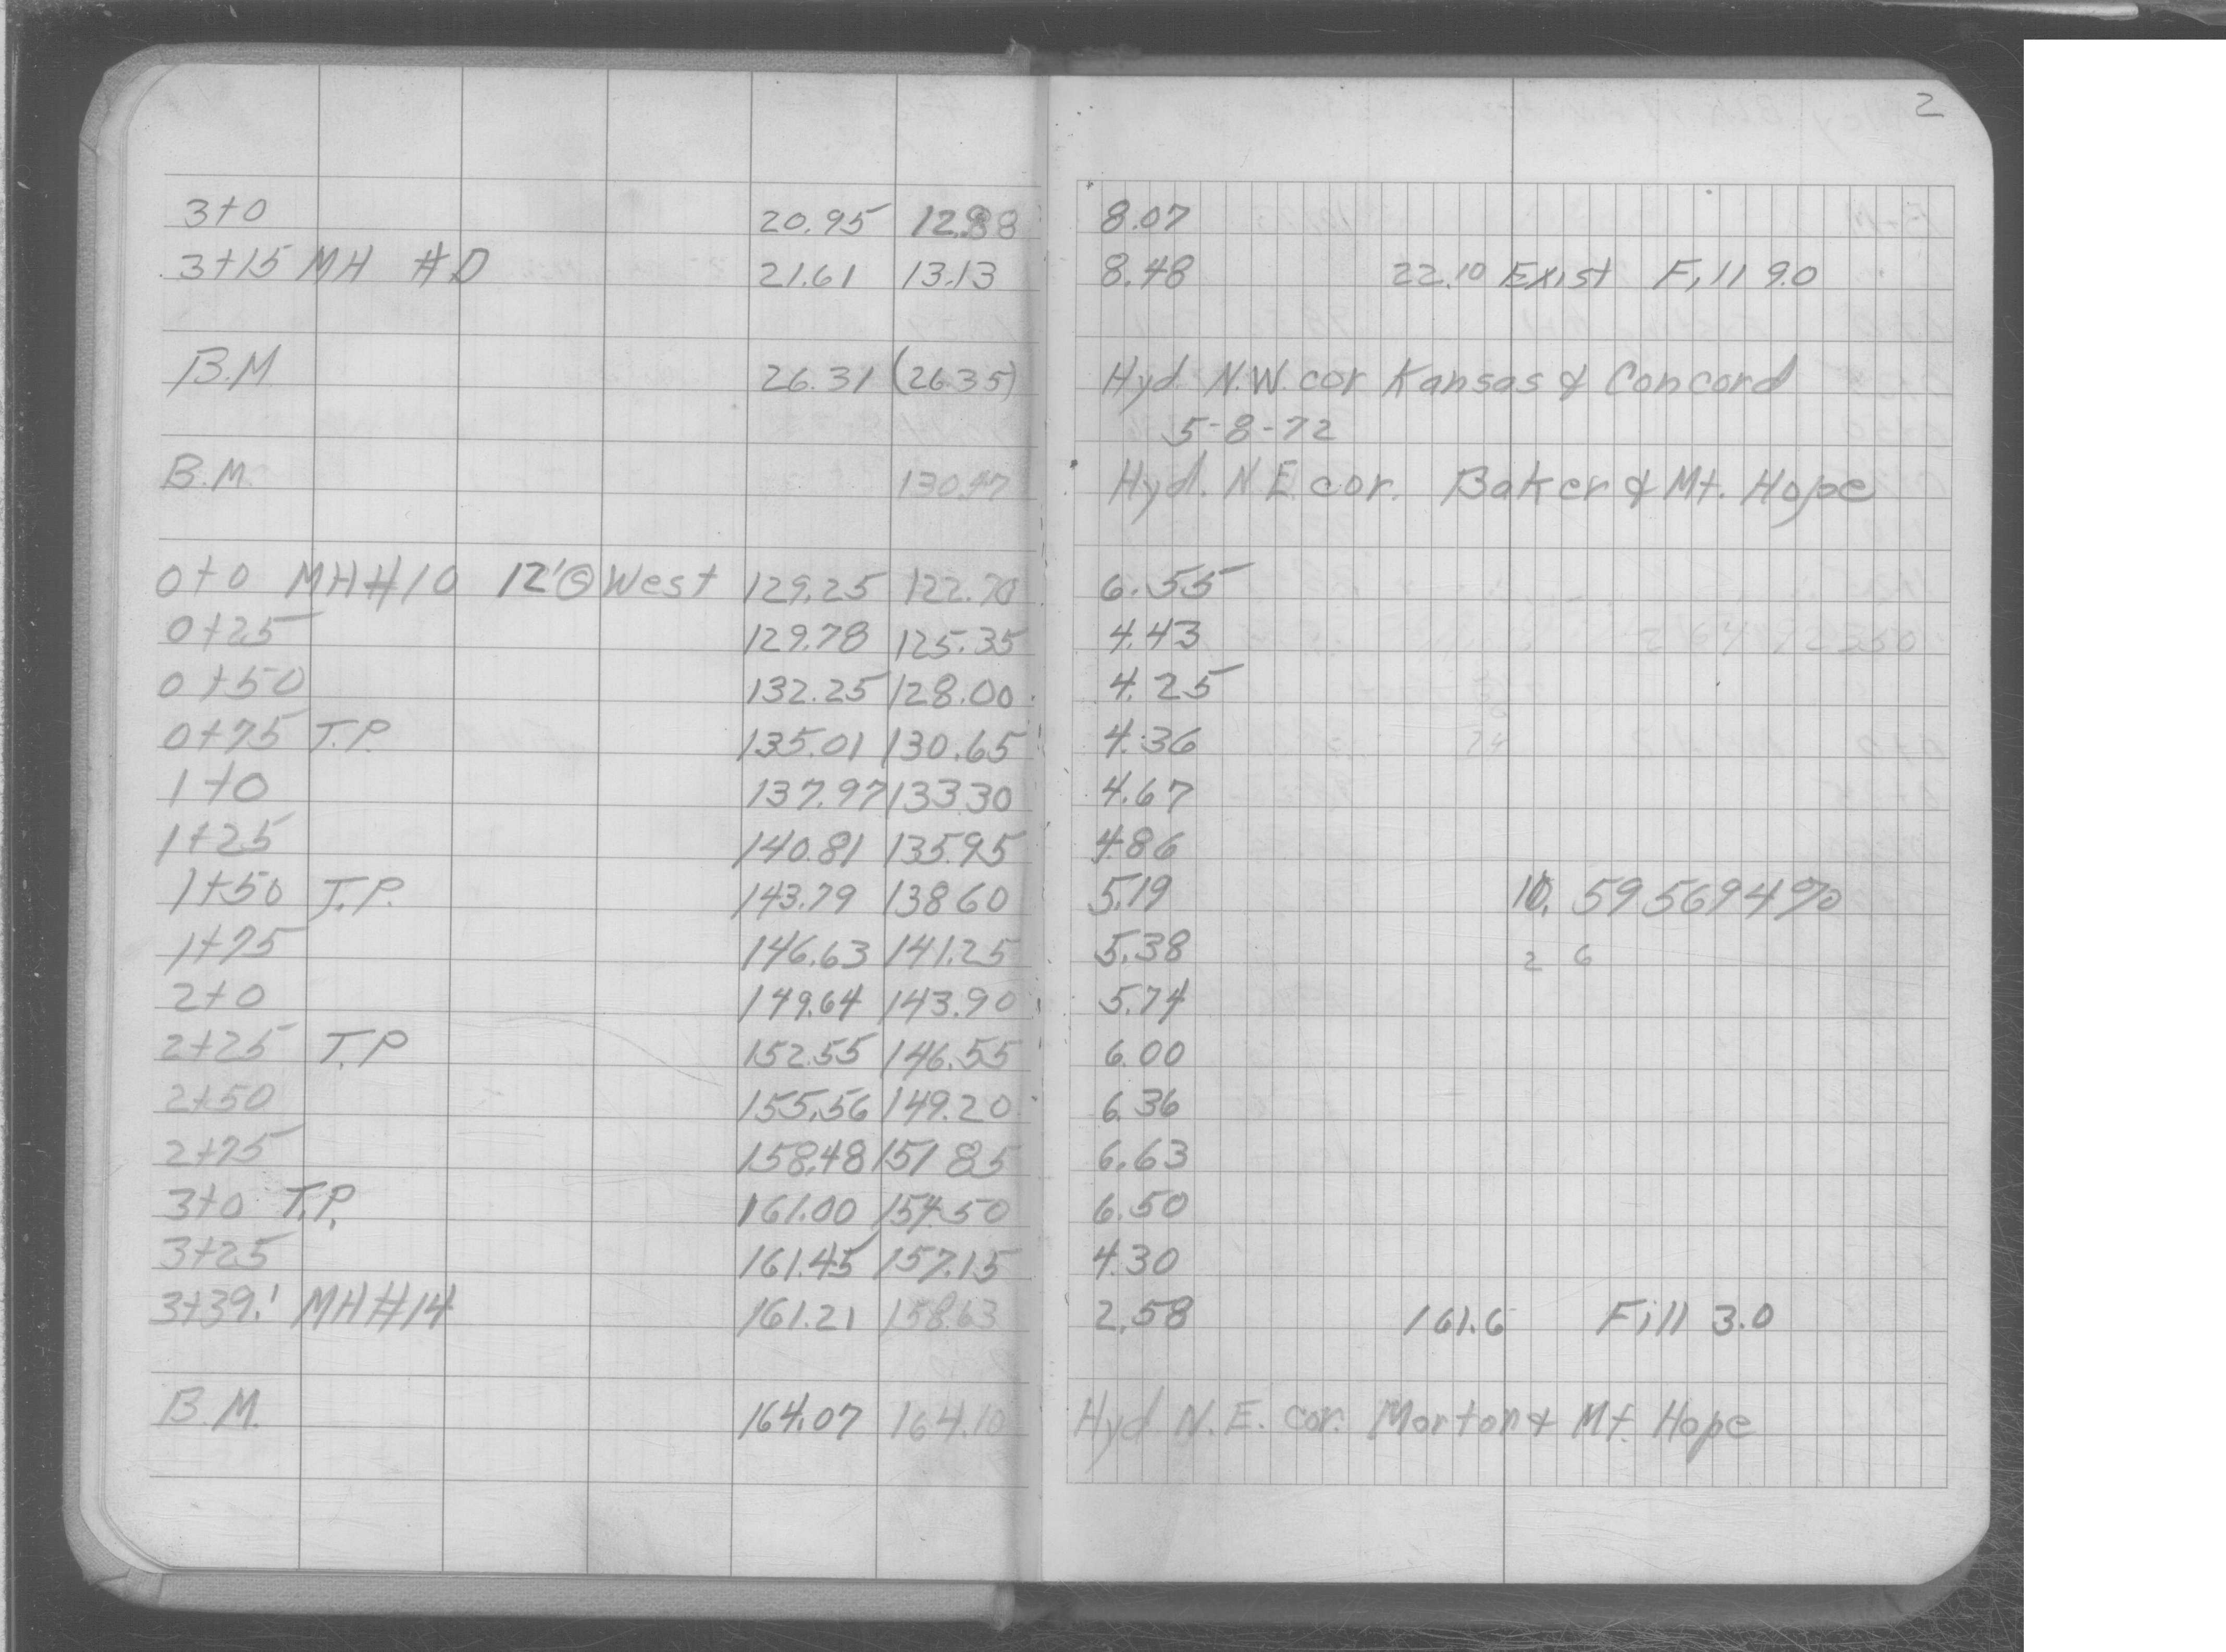 2
3+0 20.95 12.88 8.07
3+15 MH #D 21.61 13.13 8.48 22.10 Exist Fill 9.0
B.M 26.31 (26.35) Hyd. N.W. cor Kansas & Concord
5-8-72
B.M. 130.47 Hyd. N.E. cor. Baker & Mt. Hope
0+0 MH#10 12'@West 129.25 122.70 6.55
0+25 129.78 125.35 4.43
0+50 132.25 128.00 4.25
0+75 T.P. 135.01 130.65 4.36
1+0 137.97 133.30 4.67
1+25 140.81 135.95 4.86
1+50 T.P. 143.79 138.60 5.19 10.595694%
1+75 146.63 141.25 5.38 2 6
2+0 149.64 143.90 5.74
2+25 T.P 152.55 146.55 6.00
2+50 155.56 149.20 6.36
2+75 158.48 151.85 6.63
3+0 T.P. 161.00 154.50 6.50
3+25 161.45 157.15 4.30
3+39.' MH#14 161.21 158.63 2.58 161.6 Fill 3.0
B.M. 164.07 164.10 Hyd N.E. cor. Morton & Mt. Hope